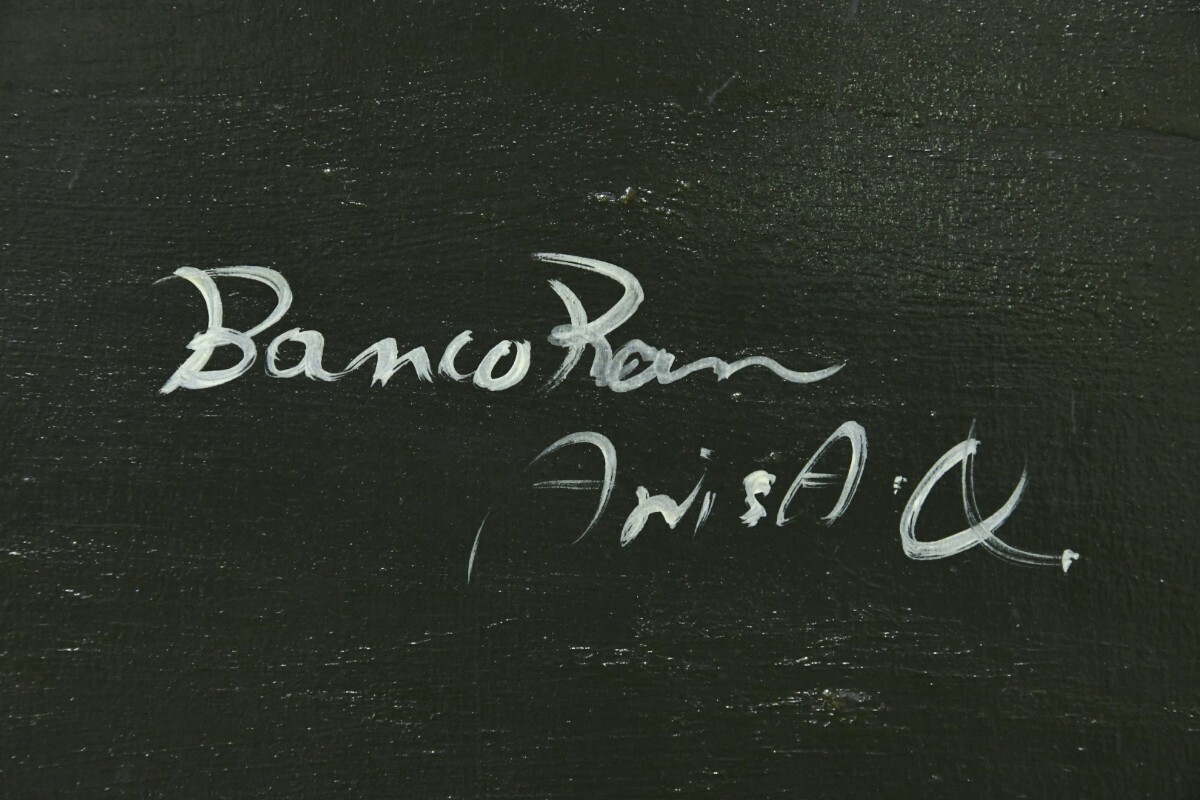 Banco Ran
AnisA.Q.